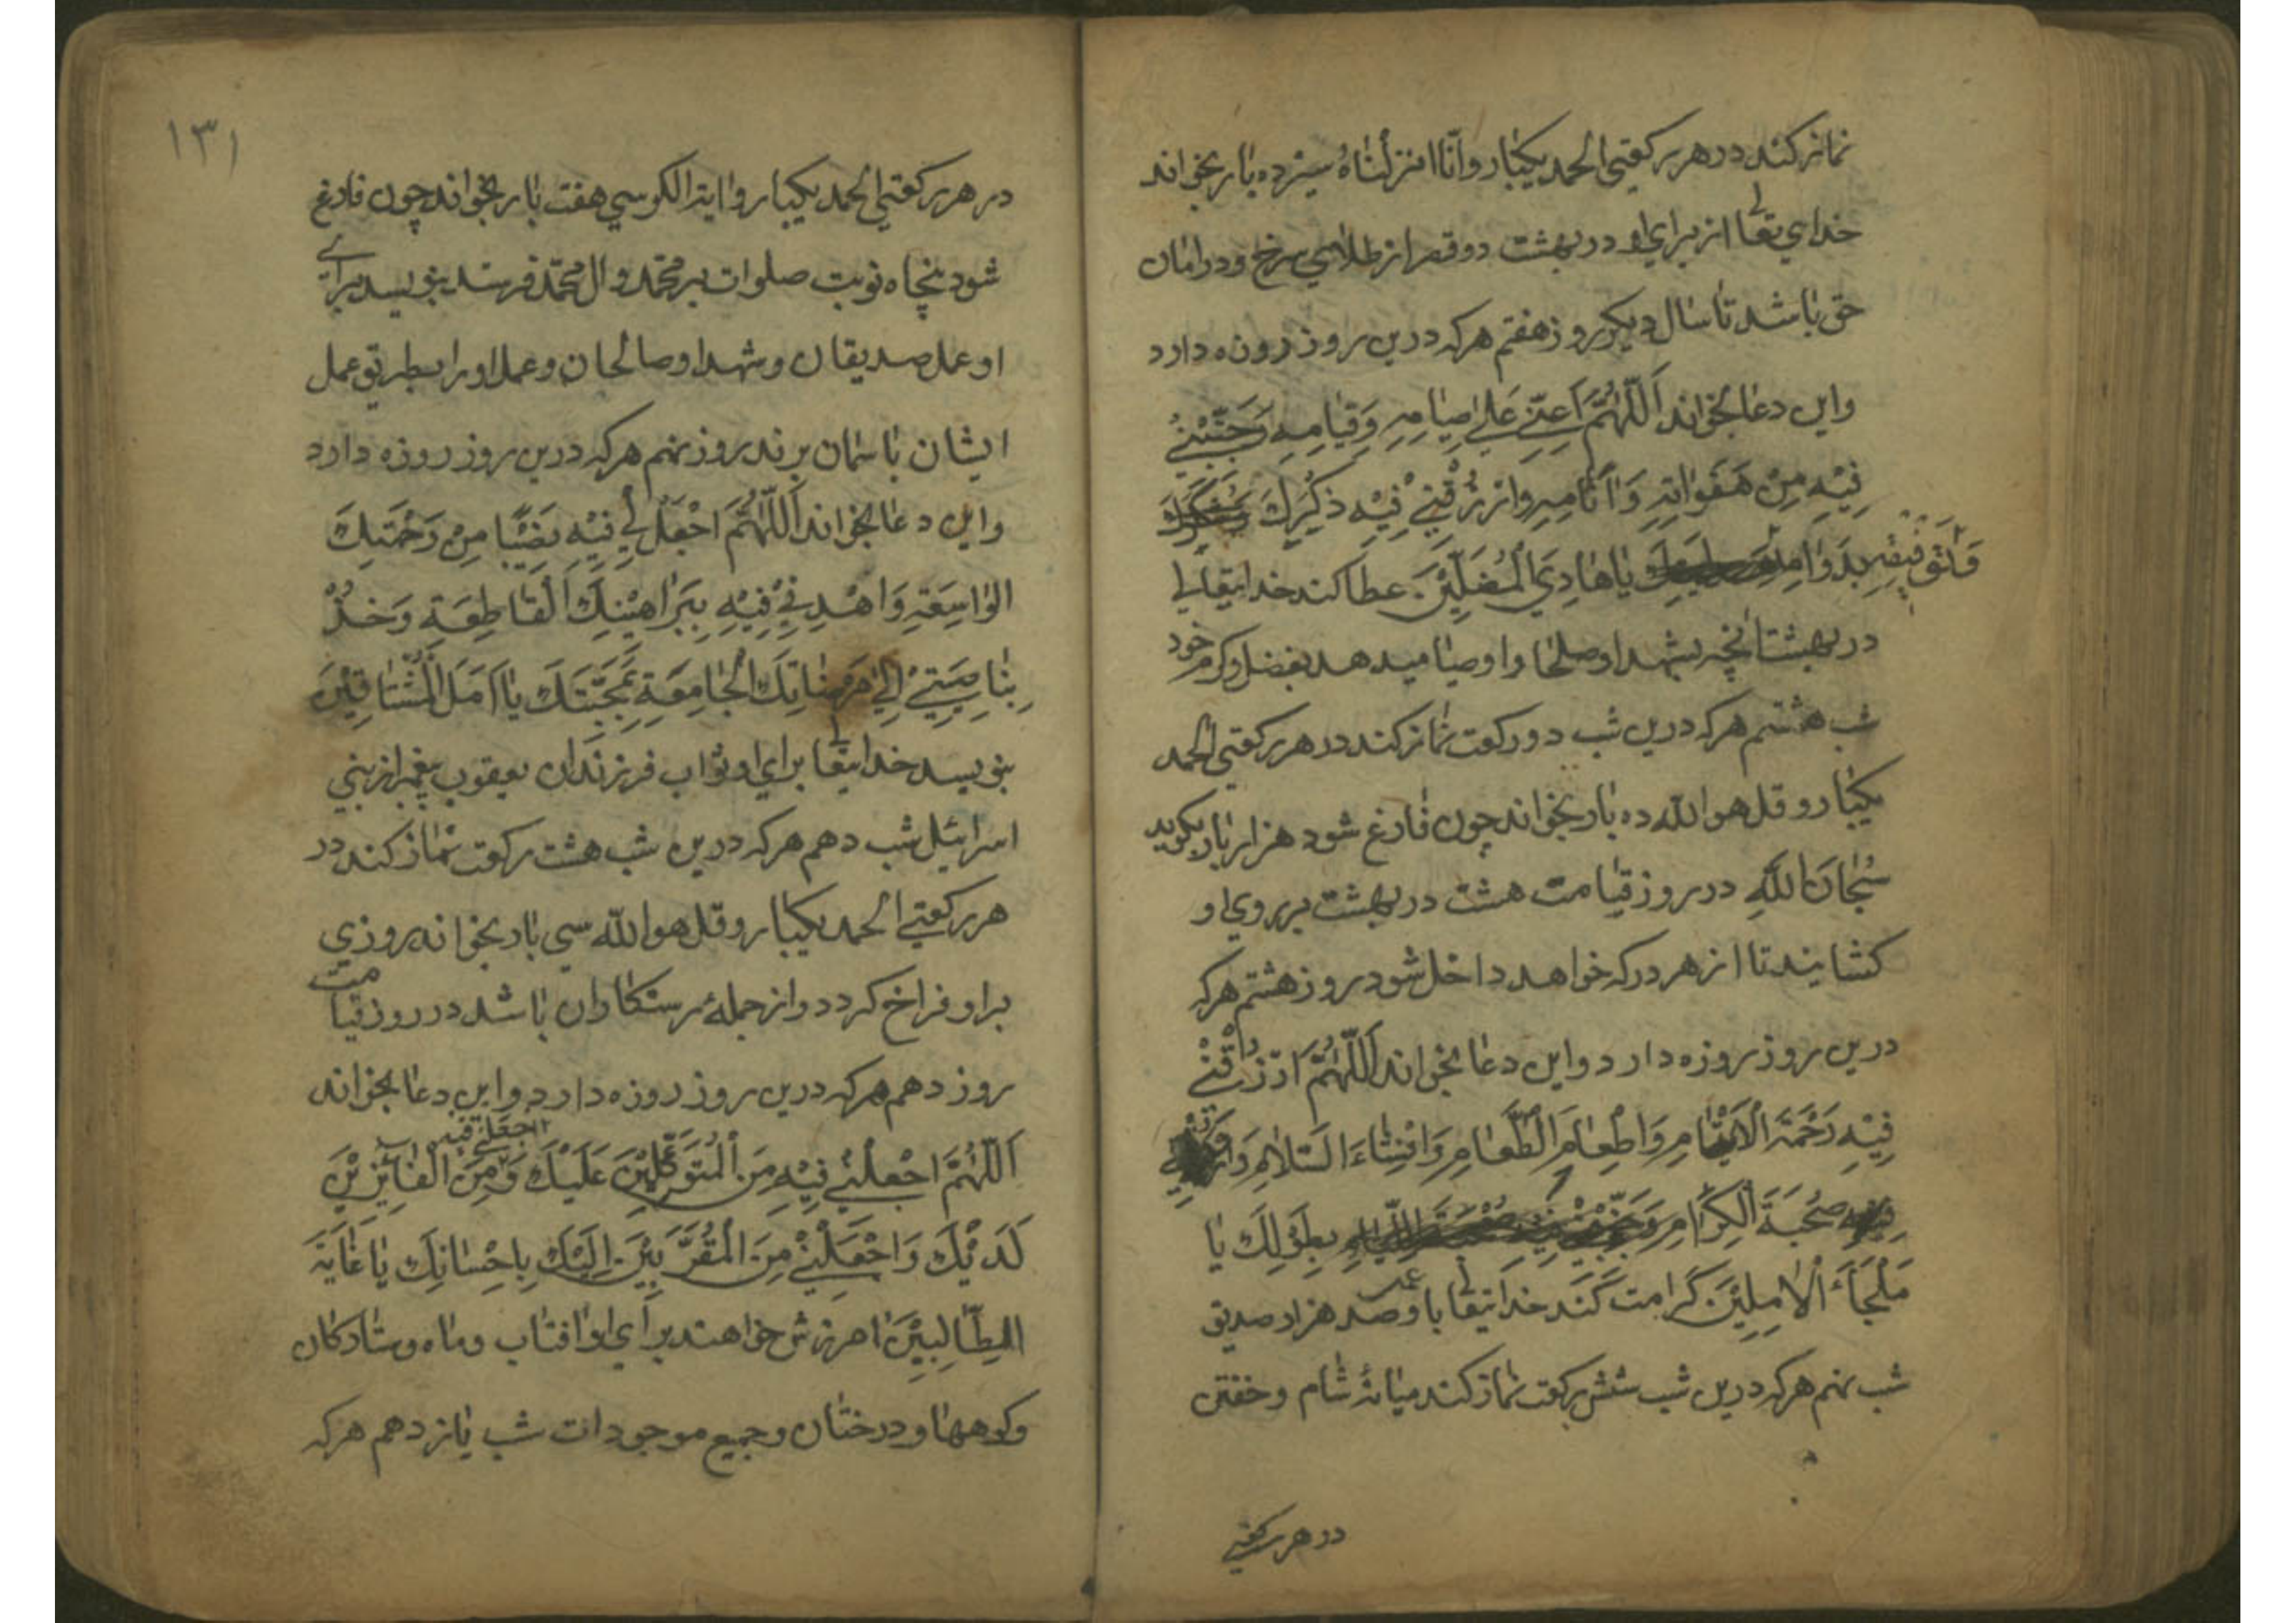 نماز کند در هر رکعتی الحمد یکبار و انّا انزلناهُ سیزده بار بخواند
خدای تعالی از برای او در بهشت دو قصر از طلای سرخ و در امان
حق باشد تا سال دیکر روز هفتم هرکه درین روز روزه دارد
و این دعا بخواند اَللّٰهُمَّ اَعِنّي عَلیٰ صِیٰامِهِ وَقِیٰامِهِ وَجَنِّبْنيٖ
فِيْهِ مِنْ هَفَوٰاتِهِ وَاٰثٰامِهِ وَارْزُقْنيٖ فِيْهِ ذِكْرَكَ
بِدَوٰامِهِ وَتَوْفِيقِهِ یٰا هٰادِيَ الْمُضَلّيٖنَ عطا کند خدایتعالی
در بهشت انچه بشهدا و صلحا و اوصیا میدهد بفضل و کرم خود
شب هشتم هرکه درین شب دو رکعت نماز کند در هر رکعتی الحمد
یکبار و قل هو الله ده بار بخواند چون فارغ شود هزار بار بکوید
سُبْحٰانَ اللّٰهِ در روز قیامت هشت در بهشت بر روی او
کشایند تا از هر در که خواهد داخل شود روز هشتم هرکه
درین روز روزه دارد و این دعا بخواند اَللّٰهُمَّ ارْزُقْنيٖ
فِيْهِ رَحْمَةَ الْاَيْتٰامِ وَاِطْعٰامَ الطَّعٰامِ وَاِفْشٰاءَ السَّلاٰمِ وَارْزُقْنيٖ
فِيْهِ صُحْبَةَ الْكِرٰامِ بِطَوْلِكَ يٰا
مَلْجَأَ الْاٰمِلِيْنَ کرامت کند خدایتعالی با و عمل صد هزار صدیق
شب نهم هرکه درین شب شش رکعت نماز کند میانهٔ شام و خفتن
در هر رکعتی
١٣١
در هر رکعتی الحمد یکبار و ایة الکرسي هفت بار بخواند چون فارغ
شود پنجاه نوبت صلوات بر محمّد و ال محمّد فرستد بنویسد برای
او عمل صدیقان و شهدا و صالحان و عمل او را بطریق عمل
ایشان باسمان برند روز نهم هرکه درین روز روزه دارد
و این دعا بخواند اَللّٰهُمَّ اجْعَلْ لٖي فِيْهِ نَصٖيْبًا مِنْ رَحْمَتِكَ
الوٰاسِعَةِ وَاهْدِنيٖ فِيْهِ بِبَرٰاهٖيْنِكَ الْقٰاطِعَةِ وَخُذْ
بِنٰاصِيَتيٖ اِلیٰ مَرْضٰاتِكَ الْجٰامِعَةِ بِمَحَبَّتِكَ يٰا اَمَلَ الْمُشْتٰاقيٖنَ
بنویسد خدایتعالی برای او ثواب فرزندان یعقوب پیغمبر از بني
اسرائیل شب دهم هرکه درین شب هشت رکعت نماز کند در
هر رکعتی الحمد یکبار و قل هو الله سی بار بخواند روزی
بر او فراخ کردد و از جملهٔ رستکاران باشد در روز قیامت
روز دهم هرکه درین روز روزه دارد و این دعا بخواند
اَللّٰهُمَّ اجْعَلْنيٖ فِيْهِ مِنَ الْمُتَوَكِّليٖنَ عَلَيْكَ وَاجْعَلْنيٖ فيٖهِ مِنَ الْفٰائِزيٖنَ
لَدَيْكَ وَاجْعَلْنيٖ مِنَ الْمُقَرَّبيٖنَ اِلَيْكَ بِاِحْسٰانِكَ يٰا غٰايَةَ
الطّٰالِبيٖنَ امرزش خواهند برای او افتاب و ماه و ستارکان
و کوهها و درختان و جمیع موجودات شب یازدهم هرکه